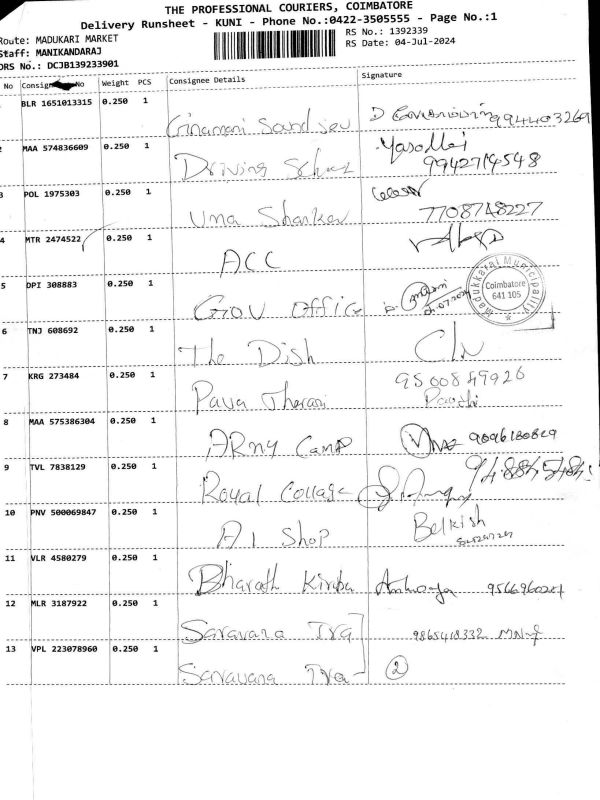 THE PROFESSIONAL COURIERS, COIMBATORE
Delivery Runsheet - KUNI - Phone No.:0422-3505555 - Page No.:1
Route: MADUKARI MARKET RS No.: 1392339
Staff: MANIKANDARAJ RS Date: 04-Jul-2024
DRS No.: DCJB139233901
No Consign No Weight PCS Consignee Details Signature
BLR 1651013315 0.250 1
2 MAA 574836609 0.250 1 Driving Yasodhai 9942714548
3 POL 1975303 0.250 1 Uma Shankar 7708748227
4 MTR 2474522 0.250 1 ACC
5 DPI 308883 0.250 1 Gov Office
Madukkarai Municipality
Coimbatore
641 105
6 TNJ 608692 0.250 1 The Dish
7 KRG 273484 0.250 1 Pava Tharani 9500849926
8 MAA 575386304 0.250 1 ARmy Camp
9 TVL 7838129 0.250 1 Royal Collage
10 PNV 500069847 0.250 1 A1 Shop Belkish
11 VLR 4580279 0.250 1 Bharath
12 MLR 3187922 0.250 1 Saravana 9865418332
13 VPL 223078960 0.250 1 Saravana 2